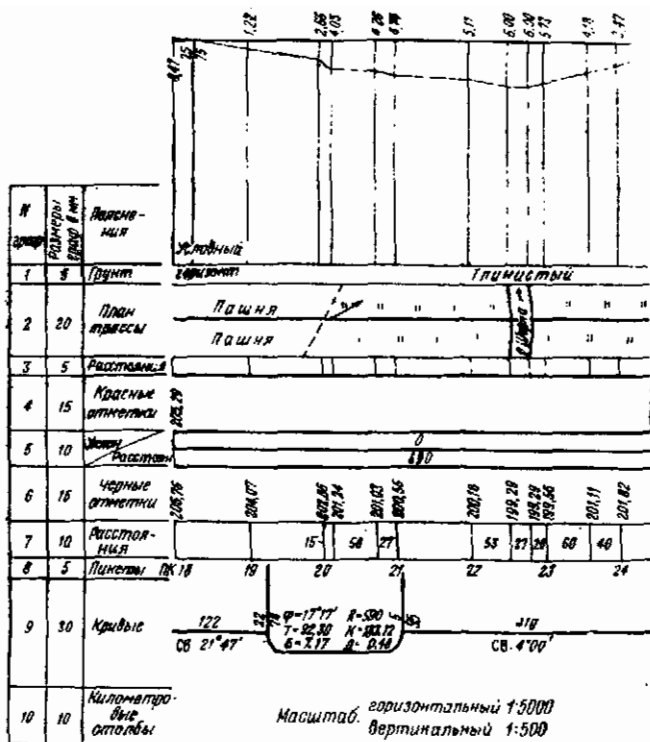 1,22 2,66 4,05 4,26 5,11 6,00 6,00 5,73 4,18 3,47
0,47 25 75
N граф Размеры граф в мм Поясне-
ния
Условный
горизонт
1 5 Грунт Глинистый
2 20 План
трассы
Пашня
Пашня
3 5 Расстояния
4 15 Красные
отметки
205,29
5 10 Уклон
Расстоян
0
6 15 Черные
отметки
205,76 204,07 201,24 201,03 200,55 200,18 199,29 199,29 199,56 201,11 201,82
7 10 Расстоя-
ния
15 58 27 53 27 20 60 40
8 5 Пикеты ПК 18 19 20 21 22 23 24
9 30 Кривые
122 22 78
СВ 21°47'
φ=17°17' R=590
5 95
СВ 4°00'
10 10 Километро-
вые
столбы
Масштаб. горизонтальный 1:5000
вертикальный 1:500